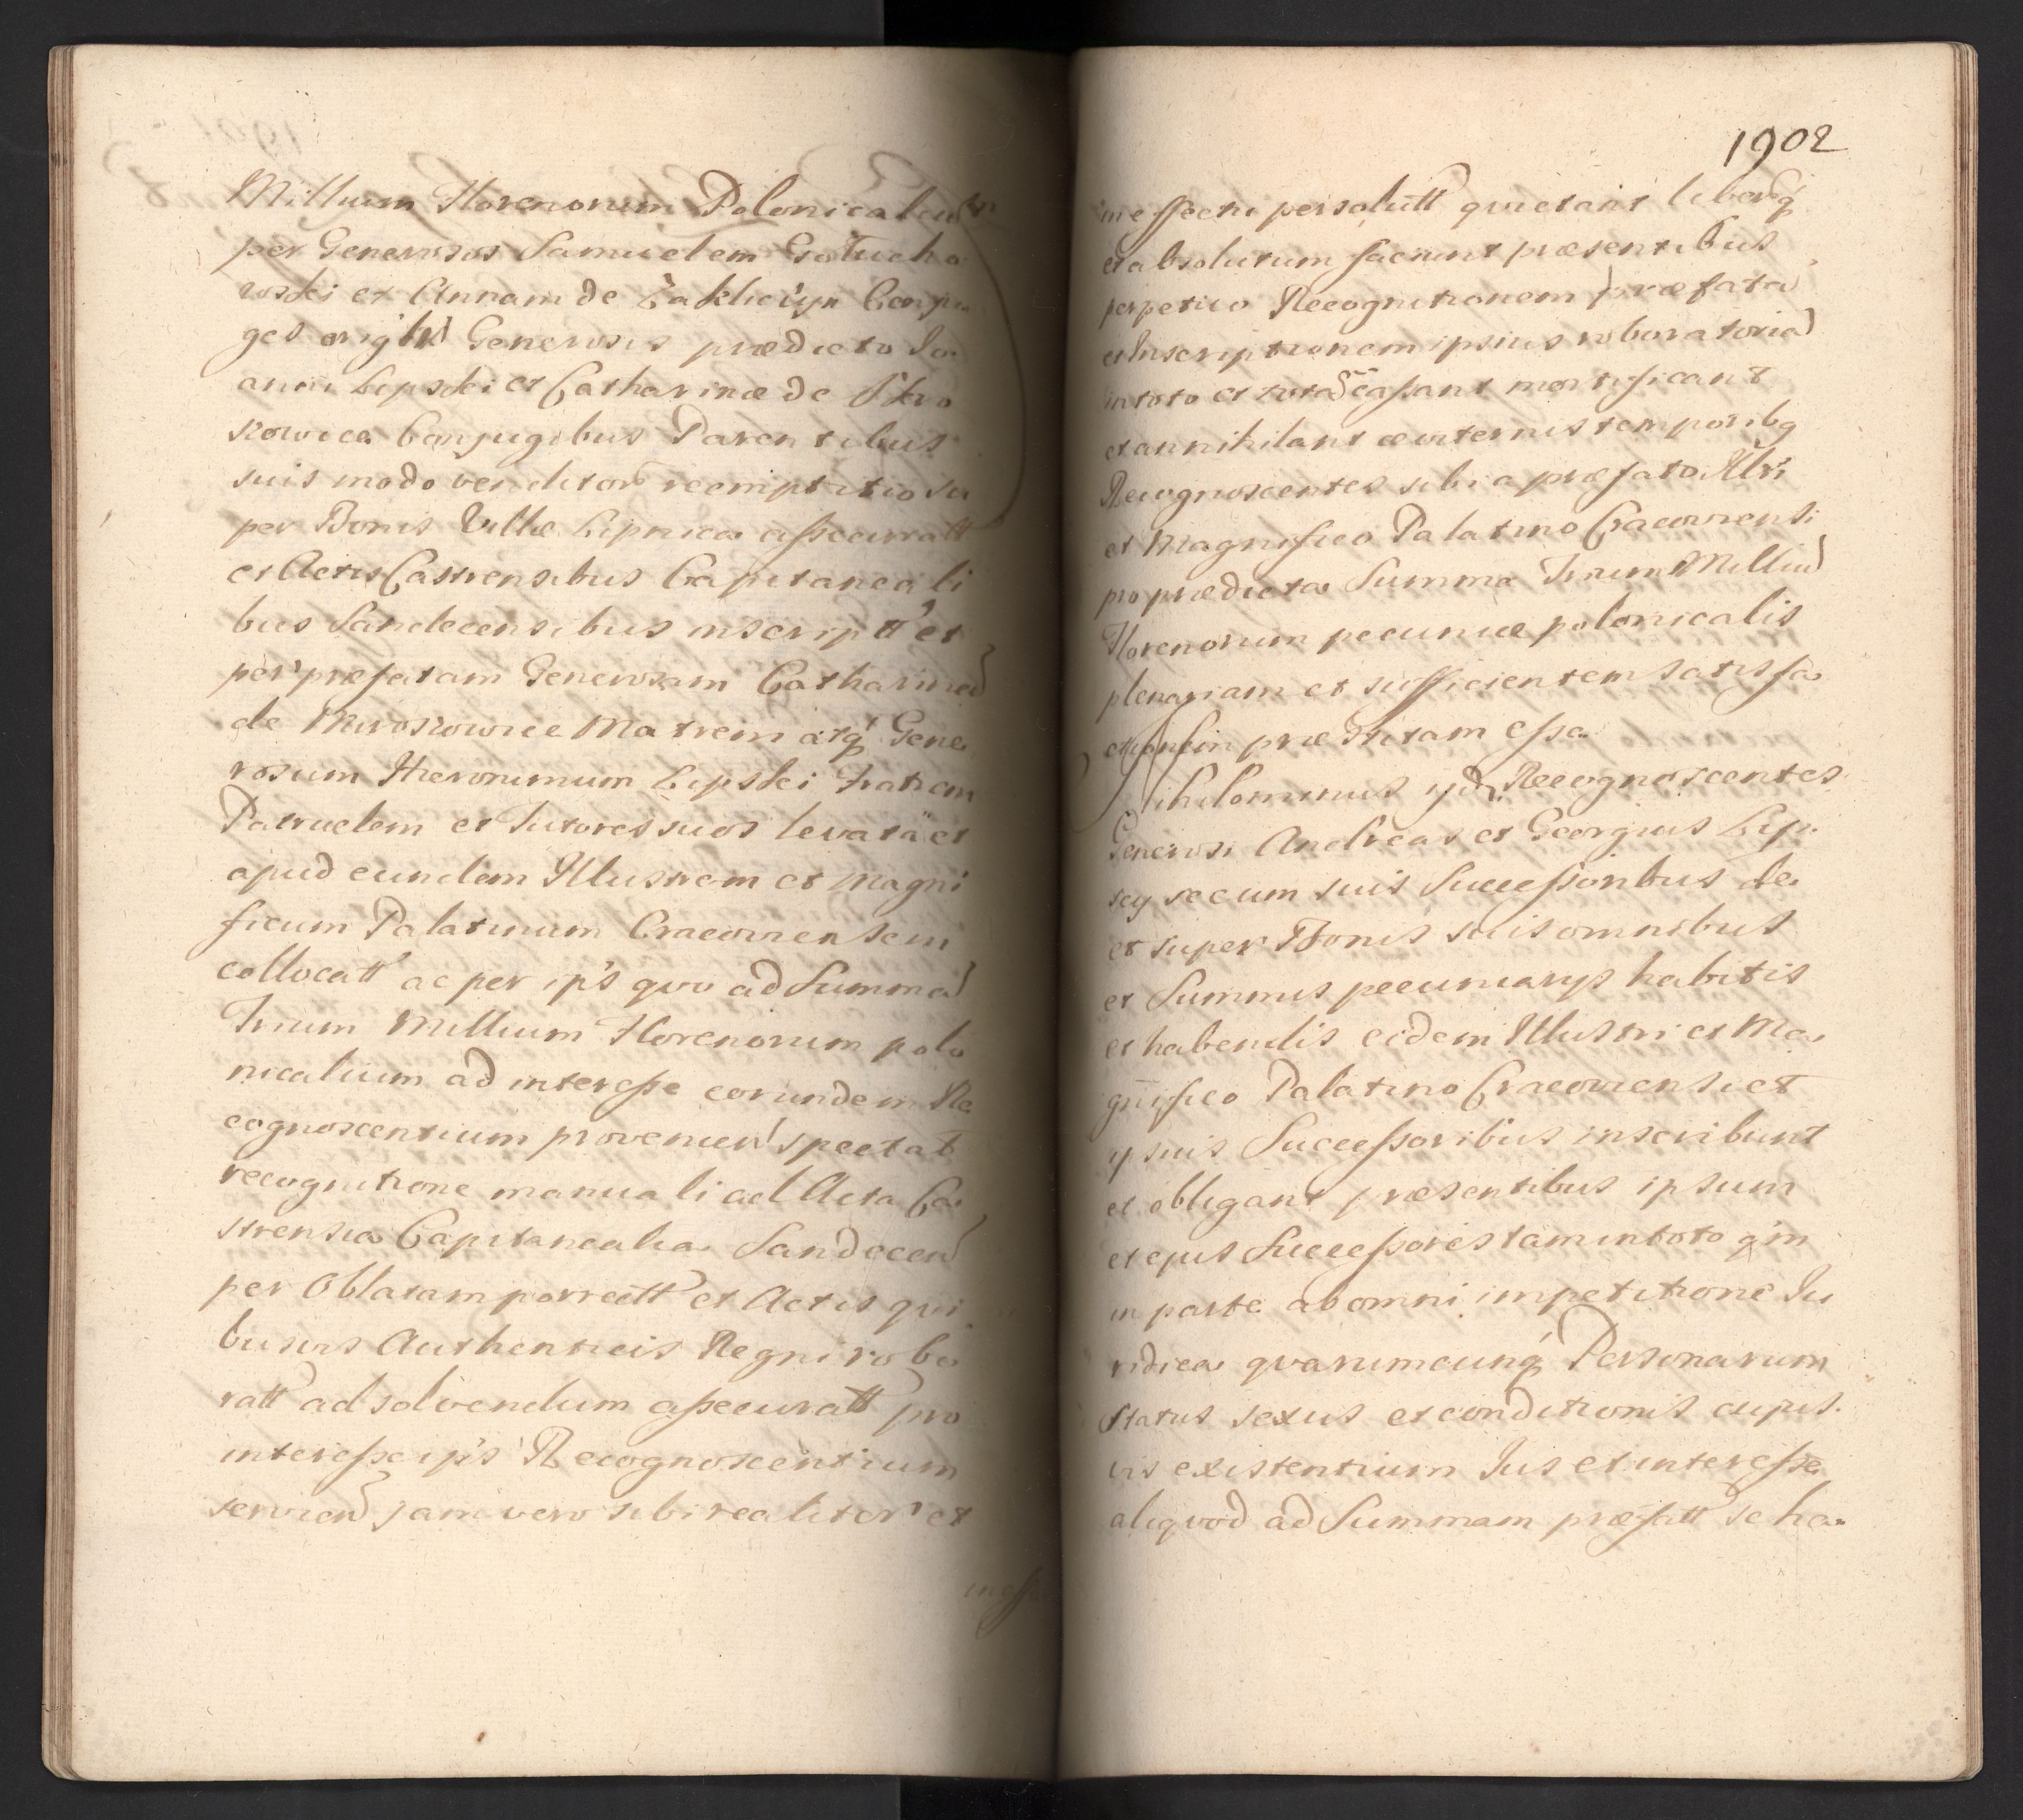 Millium Florenorum Polonicalium
per Generosos Samuelem Gołucho
wski et Annam de Zakliczyn Conju
ges origlr Generosis prædicto Jo
anni Lipski et Catharinæ de
Conjugibus Parentibus
suis modo venditorio reemptitio su
per Bonis Villæ Lipnica assecuratt
et Actis Castrensibus Capitaneali
bus Sandecensibus inscriptt et
per præfatam Generosam Catharinã
de Matrem atq Gene
rosum Hieronimum Lipski Fratrem
Patruelem et Tutores suos levatã et
apud eundem Illustrem et Magni
ficum Palatinum Cracoviensem
collocatt ac per ip's qvo ad Summã
Trium Millium Florenorum polo
nicalium ad interesse eorundem Re
cognoscentium provenien spectat
recognitione manuali ad Acta Ca
strensia Capitanealia Sandecen
per Oblatam porrectt et Actis qui
busvis Authenticis Regni robo
ratt ad solvendum assecuratt pro
interesse ip's Recognoscentium
servien jam vero sibi realiter et
ineffe
1902
in effectu persolutt quietant liberq
et absolutum faciunt præsentibus
perpetuo Recognitionem præfatã
et Inscriptionem ipsius roboratoriã
in toto et cassant mortificant
et annihilant æviternis temporibq
Recognoscentes sibi a præfato Illri
et Magnifico Palatino Cracoviensi
pro prædicta Summa Trium Milliũ
Florenorum pecuniæ polonicalis
plenariam et sufficientem satisfa
ctionem præstitam esse
Nihilominus ijdẽ Recognoscentes
Generosi Andreas et Georgius Lip
scy secum suis Successoribus de
et super Bonis suis omnibus
et Summis pecuniarijs habitis
et habendis eidem Illustri et Ma
gnifico Palatino Cracoviensi et
ipsius Successoribus inscribunt
et obligant præsentibus ipsum
et ejus Successores tam in toto q'm
in parte ab omni impetitione Ju
ridica qvarumcunq Personarum
status sexus et conditionis cujus
vis existentium Jus et interesse
aliqvod ad Summam præfatt se ha